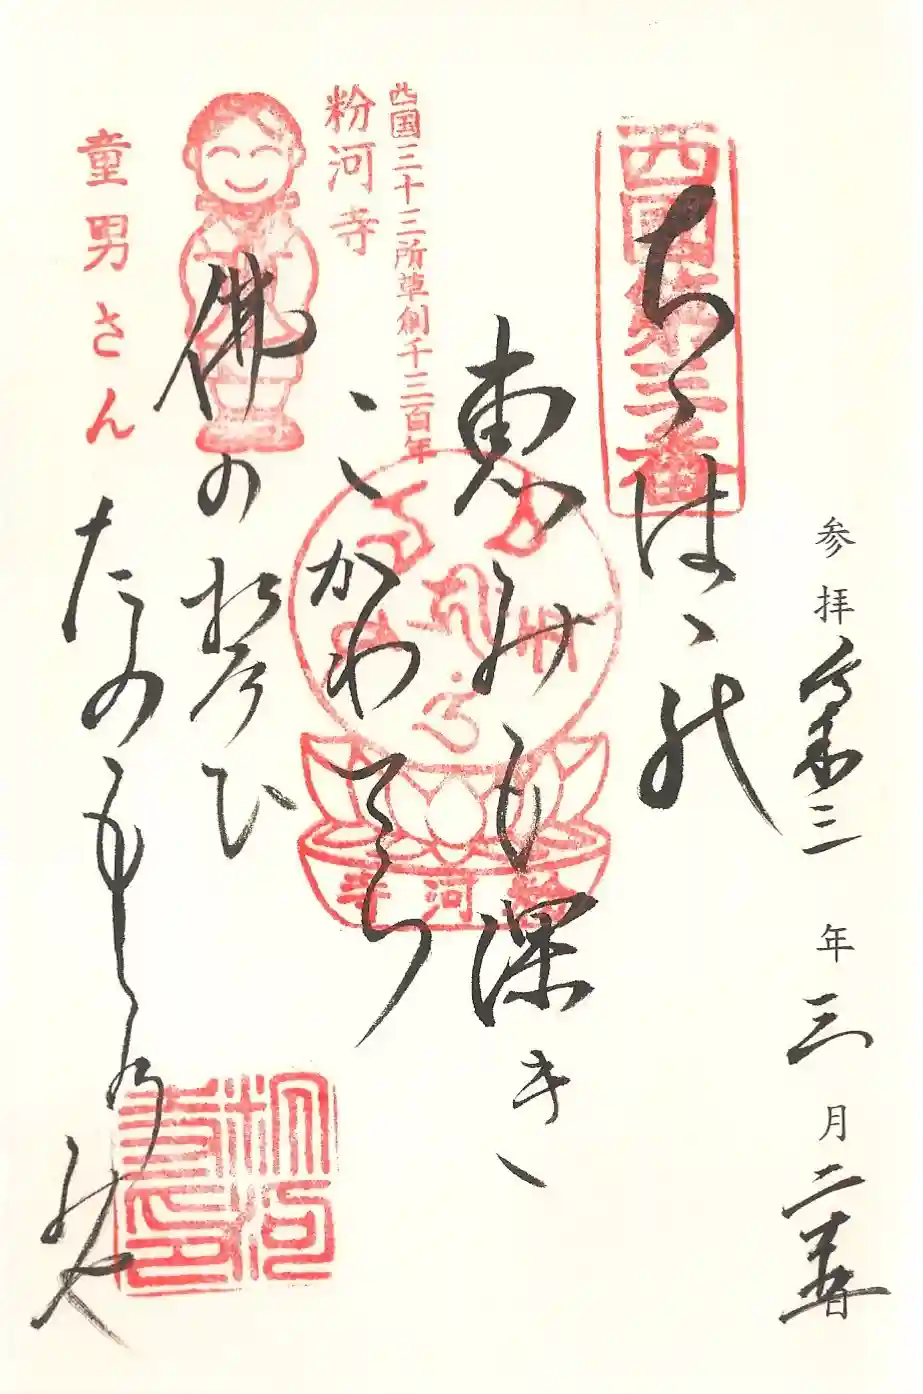 参拝 令和三年三月二十五日
西國第三番
ちゝはゝ能
恵みも深き
西国三十三所草創千三百年
粉河寺
こかわてら
粉河寺
佛の誓ひ
童男さん
たのもしの身や
粉河寺印